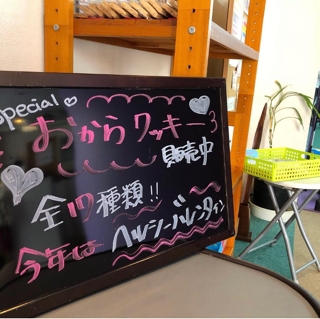 Special
おからクッキー
販売中
全17種類!!
今年は ヘルシーバレンタイン